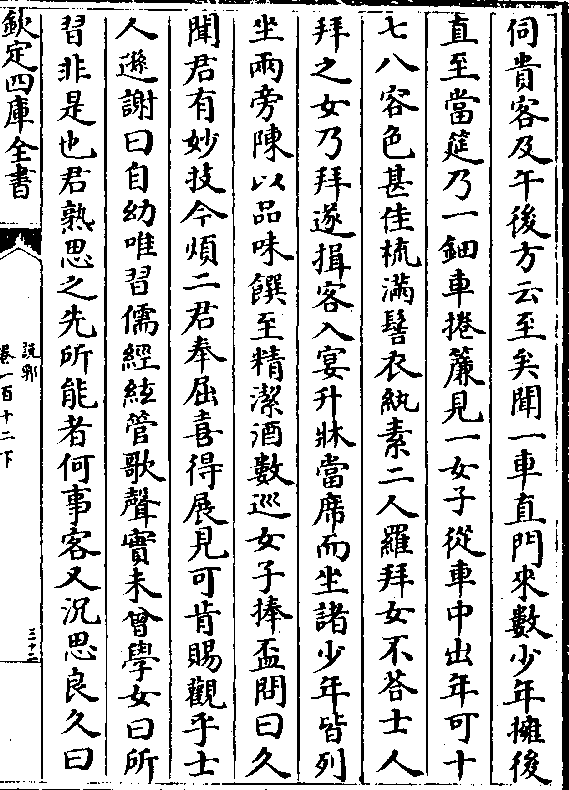 伺貴客及午後方云至矣聞一車直門來數少年擁後
直至當筵乃一鈿車捲簾見一女子從車中出年可十
七八容色甚佳梳滿髻衣紈素二人羅拜女不荅士人
拜之女乃拜遂揖客入宴升牀當席而坐諸少年皆列
坐兩旁陳以品味饌至精潔酒數巡女子捧盃問曰久
聞君有妙技今煩二君奉屈喜得展見可肯賜觀乎士
人遜謝曰自幼唯習儒經絃管歌聲實未曾學女曰所
習非是也君熟思之先所能者何事客又沉思良久曰
欽定四庫全書
說郛
卷一百十二下
三十二